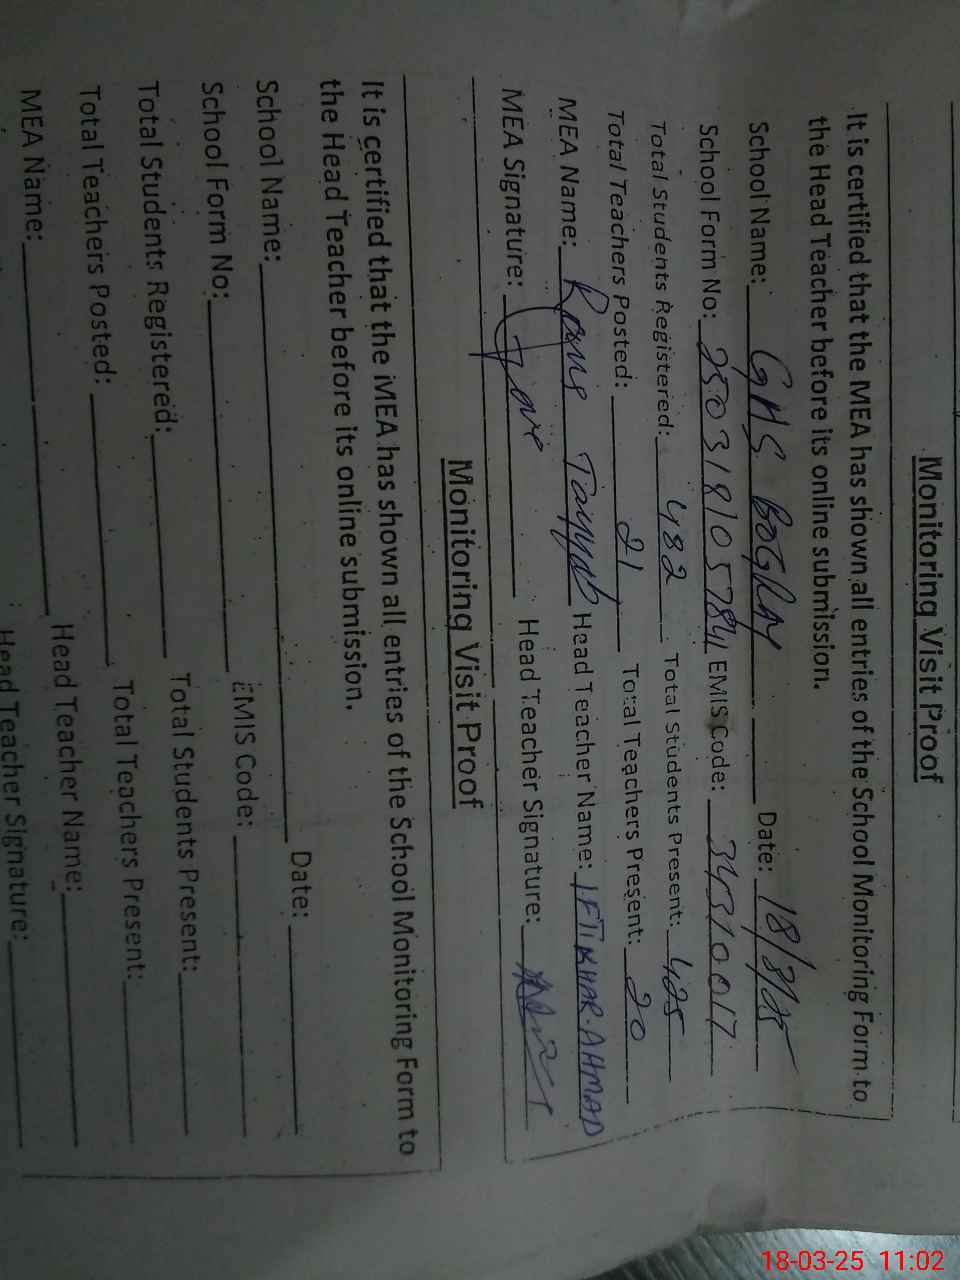 Monitoring Visit Proof
It is certified that the MEA has shown all entries of the School Monitoring Form to
the Head Teacher before its online submission.
School Name: GHS BOGRAY Date: 18/3/25
School Form No: 2503181057841 EMIS Code: 34310017
Total Students Registered: 482 Total Students Present: 425
Total Teachers Posted: 21 Total Teachers Present: 20
MEA Name: Tayyab Head Teacher Name: IFTIKHAR AHMAD
MEA Signature: Head Teacher Signature:
Monitoring Visit Proof
It is certified that the MEA has shown all entries of the School Monitoring Form to
the Head Teacher before its online submission.
School Name: Date:
School Form No: EMIS Code:
Total Students Registered: Total Students Present:
Total Teachers Posted: Total Teachers Present:
MEA Name: Head Teacher Name:
Head Teacher Signature:
18-03-25 11:02